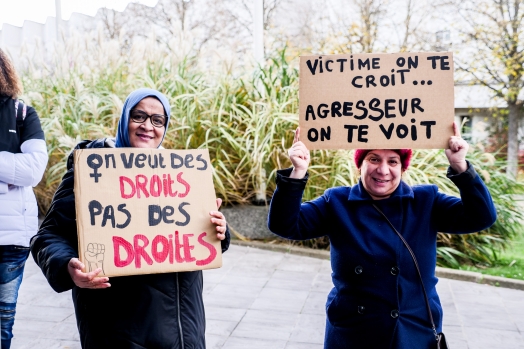 ♀ On VEUT DES
DROITS
PAS DES
DROITES
VICTIME ON TE
CROIT...
AGRESSEUR
ON TE VOIT